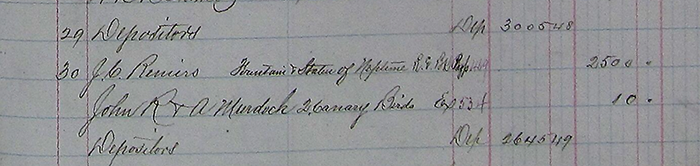 29 Depositors Dep 3005 48
30 J. C. Remers Fountain & Statue of Neptune R. E. 2500 -
John R & A Murdock 2 Canary Birds Exp 534 10 -
Depositors Dep 2645 49